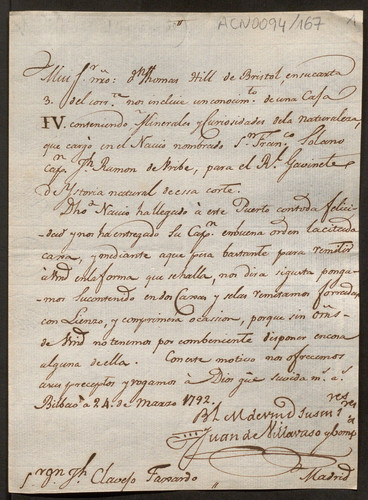 ACN0094/167
Muy S.r nro: D.n Thomas Hill de Bristol, en su carta
3. del corr.te nos incluie un conocim.to de una Caxa
IV. conteniendo Minerales y Curiosidades de la naturaleza,
que cargò en el Navio nombrado S.n Fran.co Solano
Cap.n Jph Ramon de Uribe, para el R.l Gavinete
de Ystoria natural de essa corte.
Dho Navio ha llegado à este Puerto con toda felici-
dad y nos ha entregado su Cap.n en buena orden la citada
caxa, y mediante a que pesa bastante para remitir
à Vmd en la forma que se halla, nos dira si gusta ponga-
mos su contenido en dos Caxas y se las remitamos forradas
con Lienzo, y con primera ocasion, porque sin orns
de Vmd no tenemos por combeniente disponer en cosa
alguna de ella. Con este motivo nos ofrecemos
a sus preceptos y rogamos à Dios gũe su vida m.s a.s
Bilbao à 24. de Marzo 1792.
BLM de vmd sus m.s
Juan de Villavaso y Comp.a
S.r Dn Jph Clavijo Faxardo
Madrid